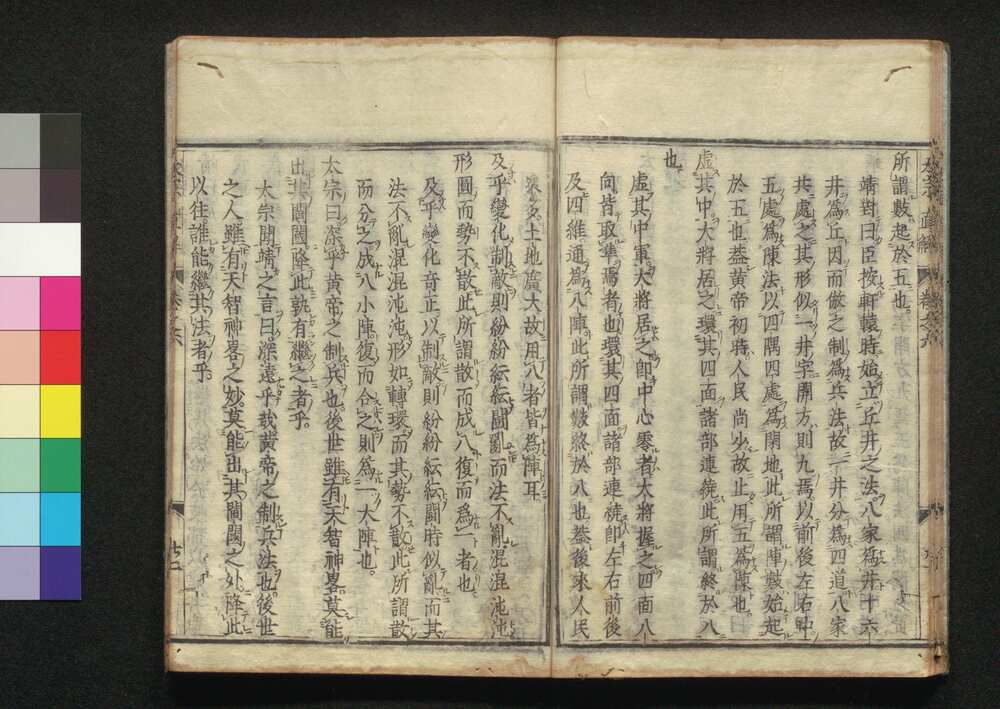 所謂數起於五也
靖對曰臣按軒轅時始立丘井之法八家為井十六
井爲丘因而倣之制爲兵法故一井分爲四道八家
共處之其形似一井字開方則九焉以前後左右中
五處爲陳法以四隅四處爲閑地此所謂陣數始起
於五也葢黃帝初時人民尚少故止用五爲陳也
虛其中大將居之環其四面諸部連繞此所謂終於八
也
虛其中軍大將居之卽中心零者大將握之四面八
向皆取準焉者也環其四面諸部連繞卽左右前後
及四維通爲八陣此所謂數終於八也葢後來人民
衆多土地廣大故用八者皆爲陣耳
及乎變化制敵則紛紛紜紜鬬亂而法不亂混混沌沌
形圓而勢不散此所謂散而成八復而爲一者也
及乎變化奇正以制敵則紛紛紜紜鬬時似亂而其
法不亂混混沌沌形如轉環而其勢不散此所謂散
而分之成八小陣復而合之則爲一大陣也
太宗曰深乎黃帝之制兵也後世雖有天智神畧莫能
出其閫閾降此孰有繼之者乎
太宗聞靖之言曰深遠乎哉黃帝之制兵法也後世
之人雖有天智神畧之妙莫能出其閫閾之外降此
以往誰能繼其法者乎
直解
廿二